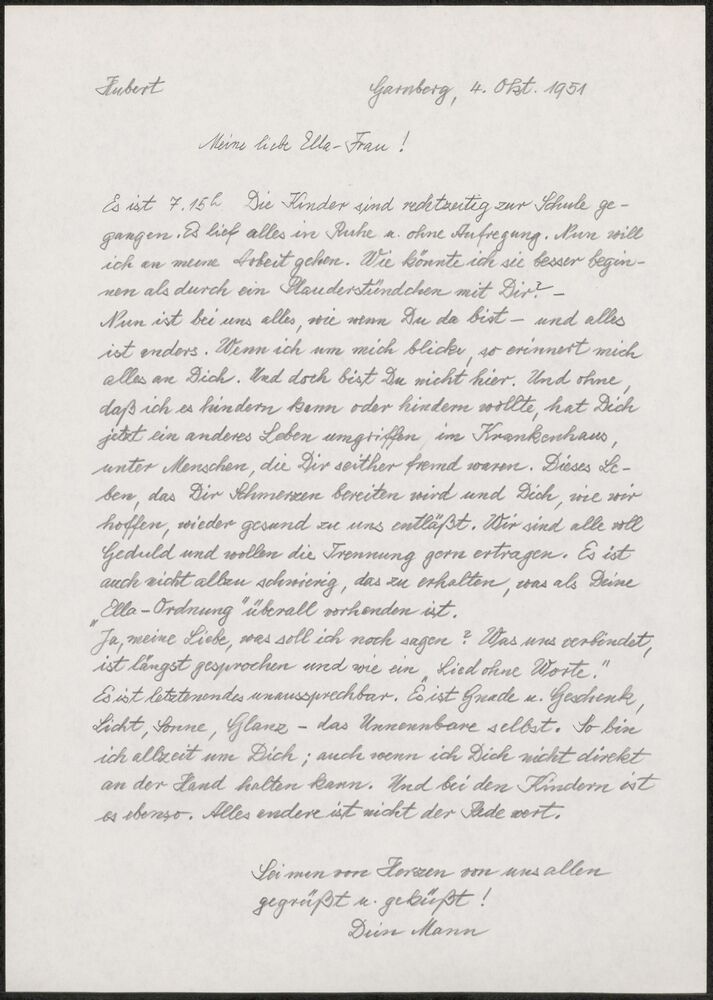 Hubert Garnberg, 4. Okt. 1951
Meine liebe Ella-Frau!
Es ist 7.15h Die Kinder sind rechtzeitig zur Schule ge-
gangen. Es lief alles in Ruhe u. ohne Aufregung. Nun will
ich an meine Arbeit gehen. Wie könnte ich sie besser begin-
nen als durch ein Plauderstündchen mit Dir? –
Nun ist bei uns alles, wie wenn Du da bist – und alles
ist anders. Wenn ich um mich blicke, so erinnert mich
alles an Dich. Und doch bist Du nicht hier. Und ohne,
daß ich es hindern kann oder hindern wollte, hat Dich
jetzt ein anderes Leben umgriffen, im Krankenhaus,
unter Menschen, die Dir seither fremd waren. Dieses Le-
ben, das Dir Schmerzen bereiten wird und Dich, wie wir
hoffen, wieder gesund zu uns entläßt. Wir sind alle voll
Geduld und wollen die Trennung gern ertragen. Es ist
auch nicht allzu schwierig, das zu erhalten, was als Deine
„Ella-Ordnung" überall vorhanden ist.
Ja, meine Liebe, was soll ich noch sagen? Was uns verbindet,
ist längst gesprochen und wie ein „Lied ohne Worte."
Es ist letztenendes unaussprechbar. Es ist Gnade u. Geschenk,
Licht, Sonne, Glanz – das Unnennbare selbst. So bin
ich allzeit um Dich; auch wenn ich Dich nicht direkt
an der Hand halten kann. Und bei den Kindern ist
es ebenso. Alles andere ist nicht der Rede wert.
Sei nun von Herzen von uns allen
gegrüßt u. geküßt!
Dein Mann